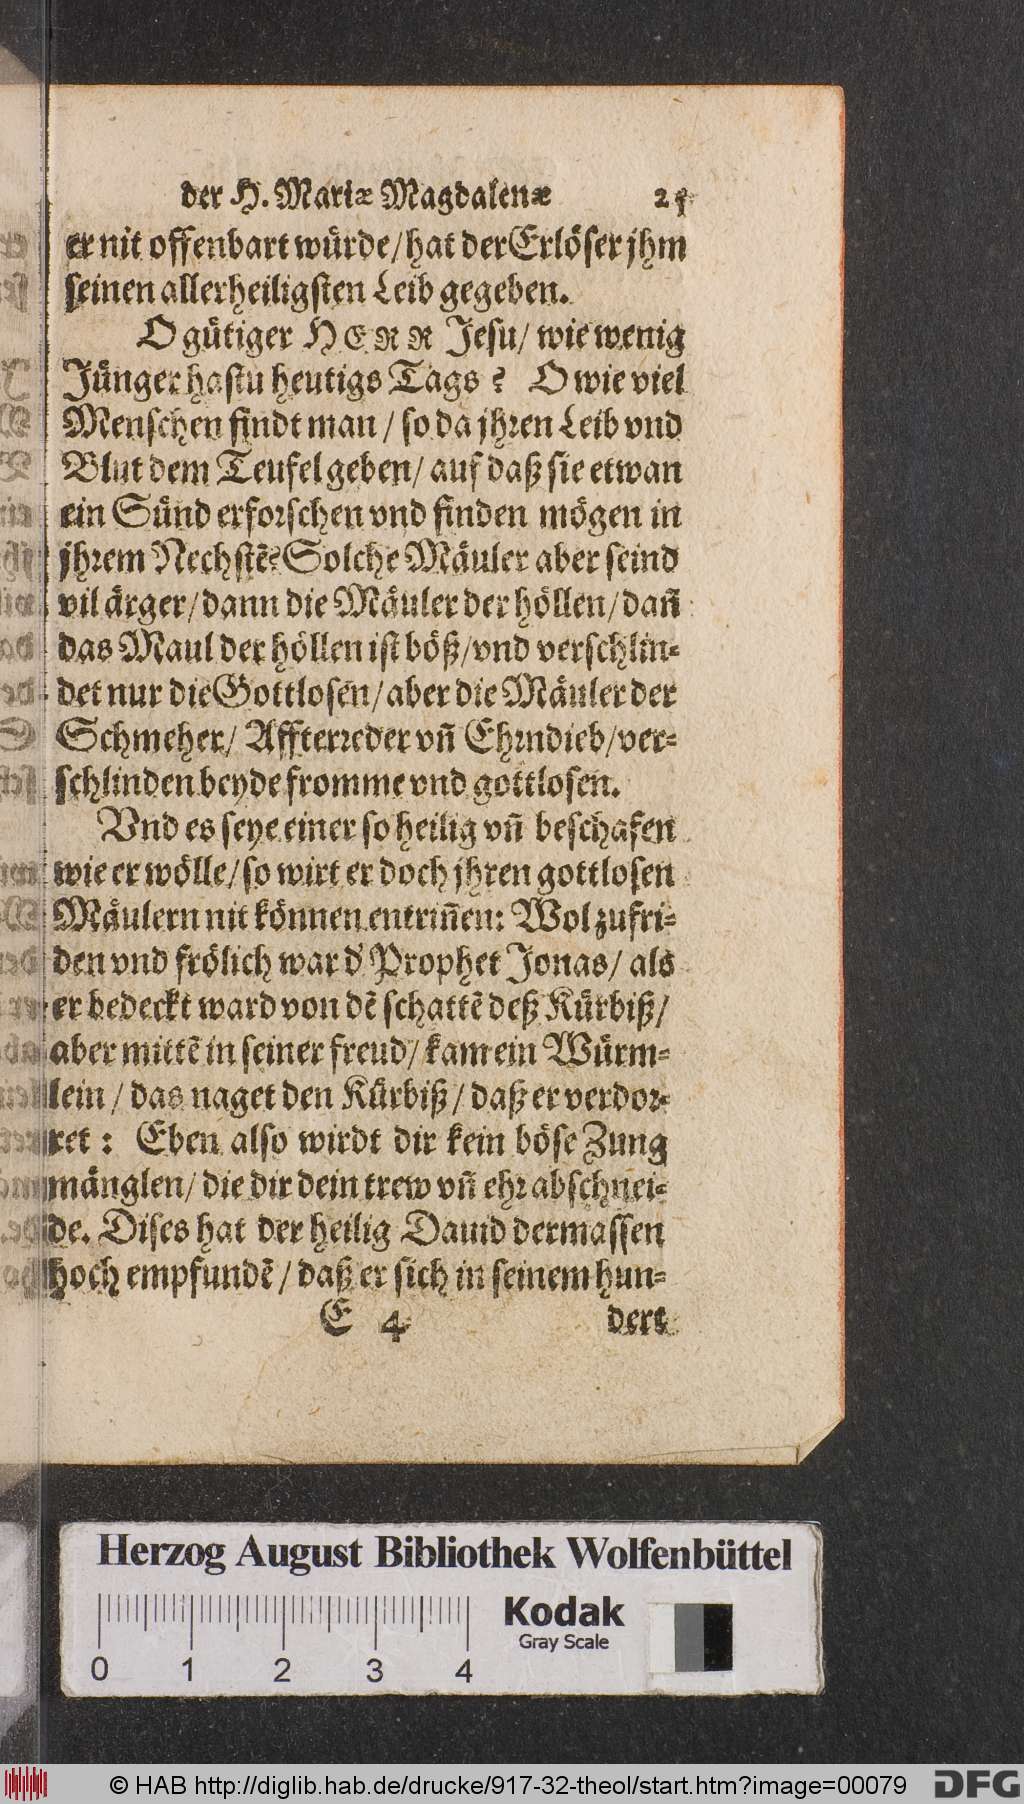 der H. Mariæ Magdalenæ 25
er nit offenbart würde/hat der Erlöser jhm
seinen allerheiligsten Leib gegeben.
O gütiger HERR Jesu/ wie wenig
Jünger hastu heutigs Tags? O wie viel
Menschen findt man/ so da jhren Leib vnd
Blut dem Teufel geben/ auf daß sie etwan
ein Sünd erforschen vnd finden mögen in
jhrem Nechstẽ? Solche Mäuler aber seind
vil ärger/dann die Mäuler der höllen/dañ
das Maul der höllen ist böß/vnd verschlin-
det nur die Gottlosen/aber die Mäuler der
Schmeher/ Affterreder vñ Ehrndieb/ver-
schlinden beyde fromme vnd gottlosen.
Vnd es seye einer so heilig vñ beschafen
wie er wölle/so wirt er doch jhren gottlosen
Mäulern nit können entriñen: Wol zufri-
den vnd frölich war d' Prophet Jonas/ als
er bedeckt ward von dẽ schattẽ deß Kürbiß/
aber mittẽ in seiner freud/ kam ein Würm-
lein/ das naget den Kürbiß/ daß er verdor-
ret: Eben also wirdt dir kein böse Zung
mänglen/ die dir dein trew vñ ehr abschnei-
de. Dises hat der heilig Dauid dermassen
hoch empfundẽ/ daß er sich in seinem hun-
E 4 dert
Herzog August Bibliothek Wolfenbüttel
Kodak
Gray Scale
0 1 2 3 4
© HAB http://diglib.hab.de/drucke/917-32-theol/start.htm?image=00079
DFG